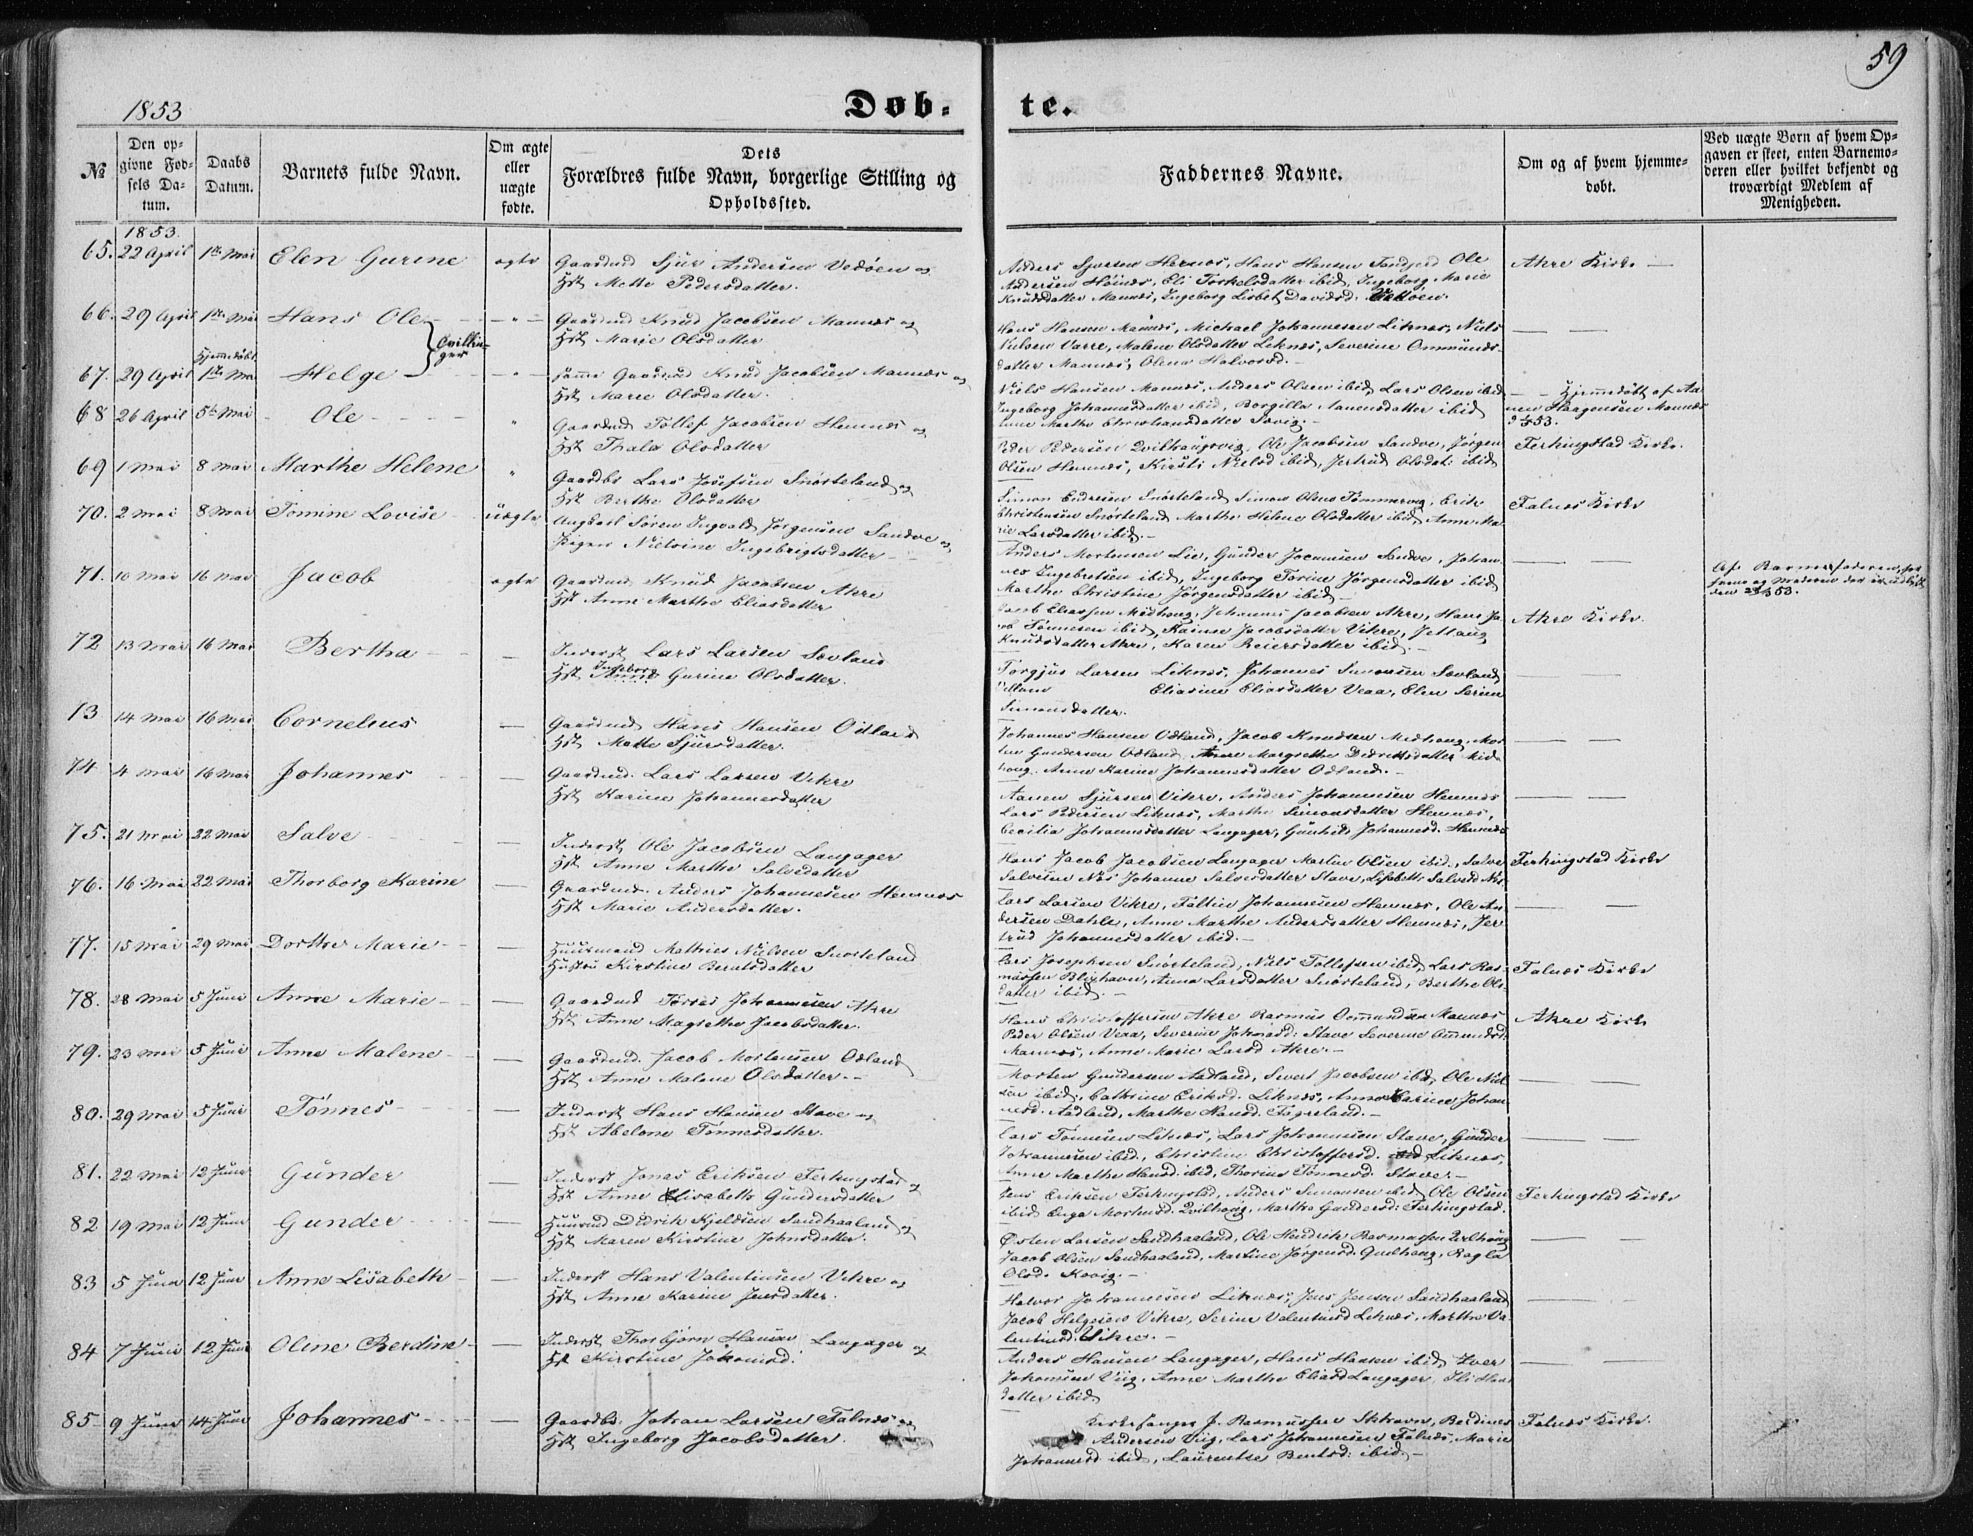 59
1853
Døb-
te.
№
Den op-
givne Fød-
sels Da-
tum.
Daabs
Datum.
Barnets fulde Navn.
Om ægte
eller
uægte
fødte.
Dets
Forældres fulde Navn, borgerlige Stilling og
Opholdssted.
Faddernes Navne.
Om og af hvem hjemme-
døbt.
Ved uægte Børn af hvem Op-
gaven er skeet, enten Barnemo-
deren eller hvilket bekjendt og
troværdigt Medlem af
Menigheden.
1853.
65. 22 April 1ste Mai Elen Gurine ægte Gaardmd Sjur Andersen Vedøen og
Hst Mette Pedersdatter.
Anders Sjursen Hemnes, Hans Hansen Ole
Andersen Høines, Eli Torkelsdatter ibid, Ingeborg Marie
Knudsdatter Mannes, Ingeborg Lisbet Davidsd.
Akre Kirke —
66. 29 April 1ste Mai Hans Ole Gaardmd Knud Jacobsen Mannes og
Hst Marie Olsdatter
Tvillin-
ger
Hans Hansen Mannes, Michael Johannesen Liknes, Niels
Nielsen Varre, Malene Olsdatter Liknes, Severine Ommunds-
datter Mannes, Olena Halvorsd. —
67. 29 April Hjemmedøbt 1ste Mai Helge samme Gaardmd Knud Jacobsen Mannes og
Hst Marie Olsdatter.
Niels Hansen Mannes, Anders Olsen ibid, Lars Olsen ibid
Ingeborg Johannesdatter ibid, Borgilla Aanensdatter ibid
Anne Marthe Christiansdatter
— Hjemmedøbt af Aa-
nen Haagensen Mannes
68 26 April 5te Mai Ole Gaardmd Tollef Jacobsen Hemnes og
Hst Thala Olsdatter
Peder Pedersen Qvilhaugsvig, Ole Jacobsen Sandve, Jørgen
Olsen Hemnes, Kirsti Nielsd ibid, Jertrud Olsdat: ibid
Ferkingstad Kirke.
69 1 Mai 8 Mai Marthe Helene Gaardbr Lars Josefsen Snørteland og
Hst Berthe Olsdatter
Simon Endresen Snørteland Simon Olsen Tømmervig, Erik
Christensen Snørteland Marthe Helene Olsdatter ibid Anne Ma-
rie Larsdatter ibid. —
Falnes Kirke
70. 2 Mai 8 Mai Tomine Lovise uægte Ungkarl Søren Ingvald Jørgensen Sandve og
Pigen Nielsine Ingebrigtsdatter —
Anders Mortensen Lie, Gunder Jocumsen Sandve, Johan-
nes Ingebretsen ibid, Ingeborg Torine Jørgensdatter ibid
Marthe Christine Jørgensdatter ibid —
Af Barnefaderen,
71. 10 Mai 16 Mai Jacob ægte Gaardmd Knud Jacobsen Akre
Hst Anne Marthe Eliasdatter
Jacob Eliassen Medhaug, Johannes Jacobsen Akre, Hans Ja-
cob Tønnesen ibid, Jacobsdatter Vikre,
Knudsdatter Akre, Karen Reiersdatter ibid. —
Akre Kirke.
72 13 Mai 16 Mai Bertha — Inderst Lars Larsen Sævland
Hst Ingeborg Gurine Olsdatter.
Torgjus Larsen Liknes, Johannes Simonsen Sævland
Eliasine Eliasdatter Veaa, Elen Serine
Simonsdatter.
13 14 Mai 16 Mai Cornelius — Gaardmd Hans Hansen Odland
Hst Mette Sjursdatter.
Johannes Hansen Odland, Jacob Knudsen Medhaug, Mor-
ten Gundersen Odland, Anne Margrethe Didriksdatter Mid-
haug. Anne Karine Johannesdatter Odland. —
74 4 Mai 16 Mai Johannes — Gaardmd. Lars Larsen Vikre
Hst Karine Johannesdatter
Aanen Sjursen Vikre, Anders Johannesen Hemnes
Lars Pedersen Liknes, Marthe Simonsdatter Hemnes,
Cecilia Johannesdatter Langager, Gunhild Johannesd. Hemnes
75. 21 Mai 22 Mai Salve — Inderst Ole Jacobsen Langager
Hst Anne Marthe Salvesdatter
Hans Jacob Jacobsen Langager Martin Olsen ibid, Salve
Salvesen Nes Johanne Salvesdatter Stave, Lisabeth Salvesd Nes.
Ferkingstad Kirke
76. 16 Mai 22 Mai Thorborg Karine — Gaardmd. Anders Johannesen Hemnes
Hst Marie Andersdatter.
Lars Larsen Vikre, Johannesen Hemnes, Ole An-
dersen Dahle, Anne Marthe Andersdatter Hemnes, Jer-
trud Johannesdatter ibid. —
77. 15 Mai 29 Mai Dorthe Marie — Huusmand Mathies Nielsen Snørteland
Hustru Kirstine Berntsdatter
Lars Josephsen Snørteland, Niels Tollefsen ibid, Lars Ras-
mussen Blikhavn, Anna Larsdatter Snørteland, Berthe Ols-
datter ibid. —
Falnes Kirke
78. 28 Mai 5 Juni Anne Marie — Gaardmd Torres Johannesen Akre
Hst Anne Magrethe Jacobsdatter.
Hans Christoffersen Akre Rasmus Ommundsen Mannes
Peder Olsen Veaa, Severine Johansd. Stave Severine Ommundsd.
Mannes, Anne Marie Larsd Akre. —
Akre Kirke
79. 23 Mai 5 Juni Anne Malene — Gaardmd. Jacob Mortensen Odland
Hst Anne Malene Olsdatter. —
Morten Gundersen Aadland, Sivert Jacobsen ibid, Ole Niel-
sen ibid, Cathrine Eriksd. Liknes, Anne Karine Johan-
nesd. Aadland, Marthe Hansd. —
80. 29 Mai 5 Juni Tønnes — Inderst Hans Hansen Stave og
Hst Abelone Tønnesdatter.
Lars Tønnesen Liknes, Lars Johannesen Stave, Gunder
Johannesen ibid., Christine Christoffersd. Liknes,
Anne Marthe Hansd. ibid, Thorine Tønnesd Stave. —
81. 22 Mai 12 Juni Gunder — Inderst Jonas Eriksen Ferkingstad og
Hst Anne Elisabeth Gundersdatter
Jens Eriksen Ferkingstad, Anders Simonsen ibid, Ole Olsen
ibid Inga Mortensd. Qvilhaug, Martha Gundersd: Ferkingstad.
Ferkingstad Kirke
82 19 Mai 12 Juni Gunder — Huusmd Didrik Kjeldsen Sandhaaland og
Hst Maren Kirstine Johnsdatter.
Østen Larsen Sandhaaland, Ole Hendrik Rasmussen Qvilhaug
Jacob Olsen Sandhaaland, Martine Jørgensd. Qvilhaug, Ragla
Olsd.
83 5 Juni 12 Juni Anne Lisabeth — Inderst Hans Valentinsen Vikre og
Hst Anne Karine Jensdatter.
Halvor Johannesen Liknes, Jens Jensen Sandhaaland
Jacob Helgesen Vikre, Serine Valentinsd Liknes, Marthe Va-
lentinsd. Vikre. —
84 7 Juni 12 Juni Oline Berdine — Inderst Thorbjørn Hansen Langager og
Hst Kirstine Johansd.
Anders Hansen Langager, Hans Hansen ibid, Iver
Johansen Viig, Anne Marthe Eliasd Langager, Hans-
datter ibid
85 9 Juni 14 Juni Johannes — Gaardbr. Johan Larsen Falnes og
Hst Ingeborg Jacobsdatter.
Kirkesanger J. Rasmussen Berdines
Andersen Viig, Lars Johannesen Falnes, Marie
Johannesd ibid, Laurentse Bentsd: ibid —
Falnes Kirke.